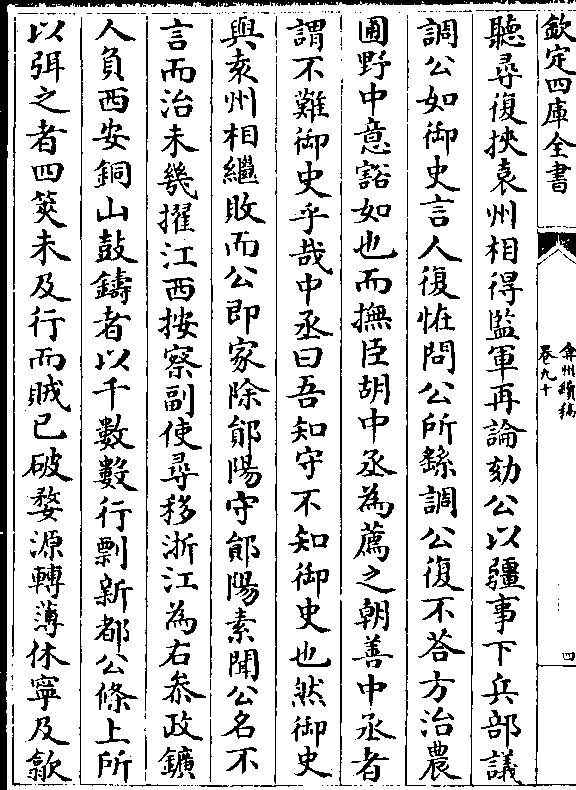 欽定四庫全書
弇州續稿
卷九十
四
聽尋復挾袁州相得監軍再論劾公以疆事下兵部議
調公如御史言人復恠問公所繇調公復不荅方治農
圃野中意豁如也而撫臣胡中丞為薦之朝善中丞者
謂不難御史乎哉中丞曰吾知守不知御史也然御史
與袁州相繼敗而公即家除鄖陽守鄖陽素聞公名不
言而治未幾擢江西按察副使尋移浙江為右叅政鑛
人負西安銅山鼓鑄者以千數數行剽新都公條上所
以弭之者四筴未及行而賊已破婺源轉薄休寧及歙